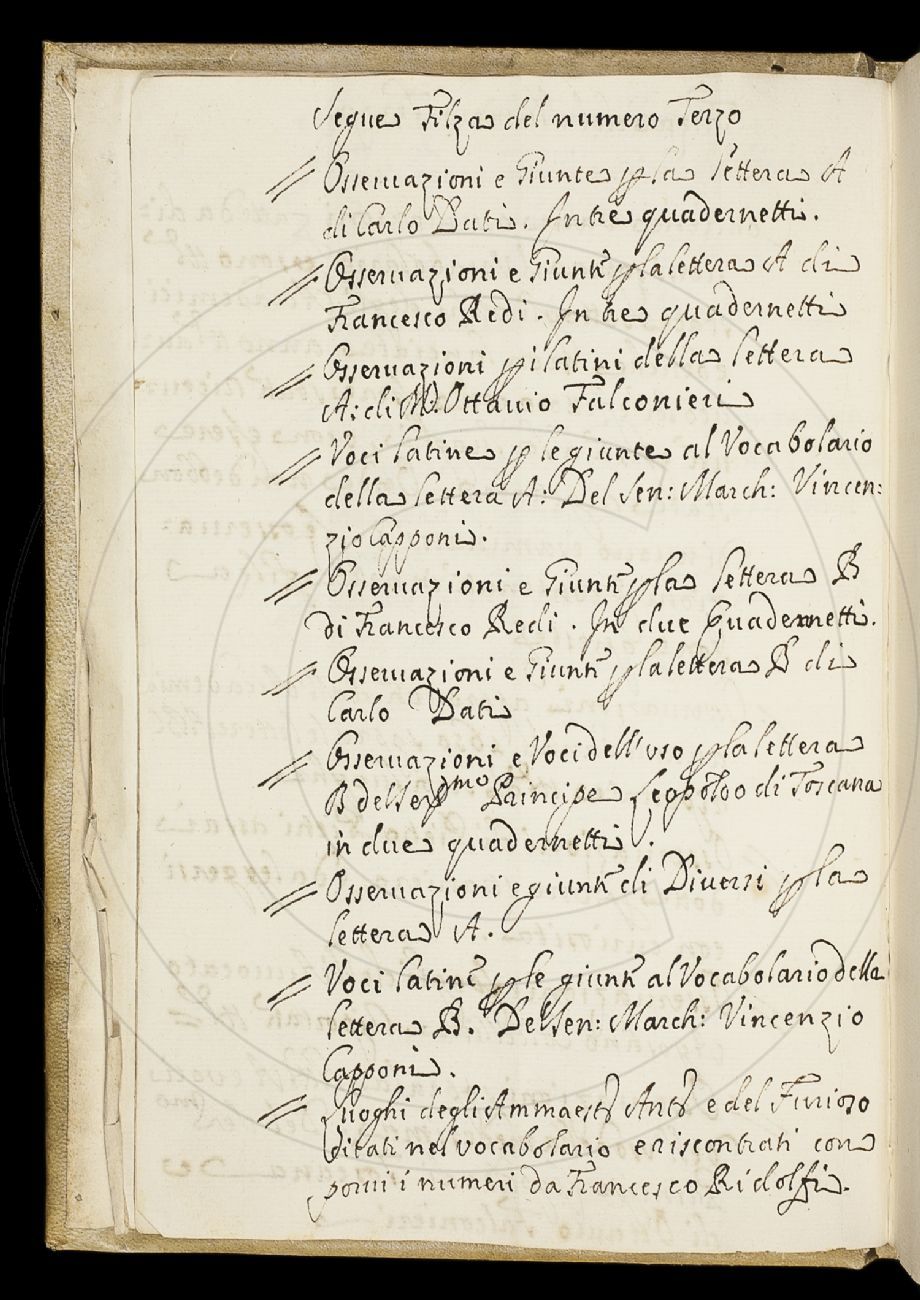 Segue Filza del numero Terzo
// Osseruazioni e Giunte p la lettera A
di Carlo Dati. In tre quadernetti.
// Osseruazioni e Giunte p la lettera A di
Francesco Redi. In tre quadernetti
// Osseruazioni p i latini della lettera
A: di Ottauio Falconieri
// Voci latine p le giunte al Vocabolario
della lettera A: Del Sen: March: Vincen:
zio Capponi.
// Osseruazioni e Giunte p la lettera B
di Francesco Redi. In due Quadernetti.
// Osseruazioni e Giunte p la lettera B di
Carlo Dati
// Osseruazioni e Voci dell'uso p la lettera
B del Ser.mo Principe Leopoldo di Toscana
in due quadernetti.
// Osseruazioni e giunte di Diuersi p la
lettera A.
// Voci latine p le giunte al Vocabolario della
lettera B. Del Sen: March: Vincenzio
Capponi.
// Luoghi degli Ammaest. Ant. e del Furioso
citati nel vocabolario e riscontrati con
porui i numeri da Francesco Ridolfi.